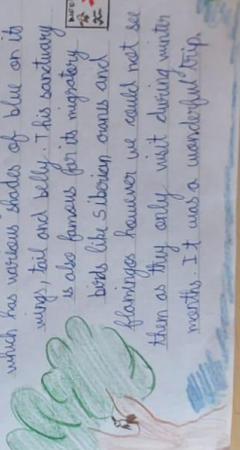 which has various shades of blue on its
wings, tail and belly. This sanctuary
is also famous for its migratory
birds like siberian cranes and
flamingos however we could not see
them as they only visit during winter
months. It was a wonderful trip.